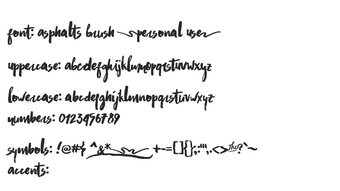 font: asphalts brush personal user
uppercase: abcdefghijklmnopqrstuvwxyz
lowercase: abcdefghijklmnopqrstuvwxyz
numbers: 0123456789
symbols: !@#$ ^&* +-=[]{};:"',.<> the ?`~
accents: